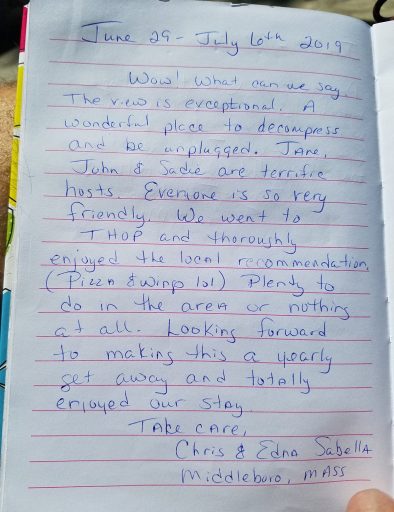 June 29 - July 10th 2019
Wow! What can we say.
The view is exceptional. A
wonderful place to decompress
and be unplugged. JAne,
John & Sadie are terrific
hosts. Everyone is so very
friendly. We went to
THOP and thoroughly
enjoyed the local recommendation.
(Pizza & wings lol) Plenty to
do in the areA or nothing
at all. Looking forward
to making this a yearly
get away and totAlly
enjoyed our stAy.
TAke cAre,
Chris & EdnA SabellA
Middleboro, mASS